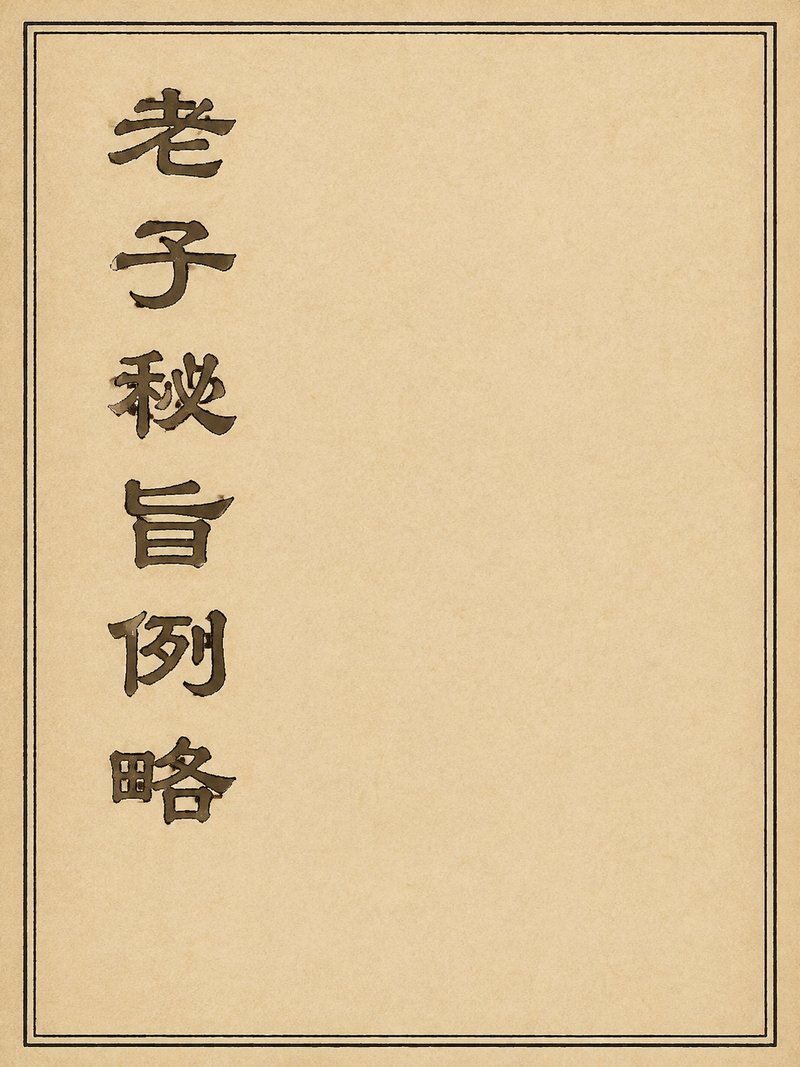 老子秘旨例略